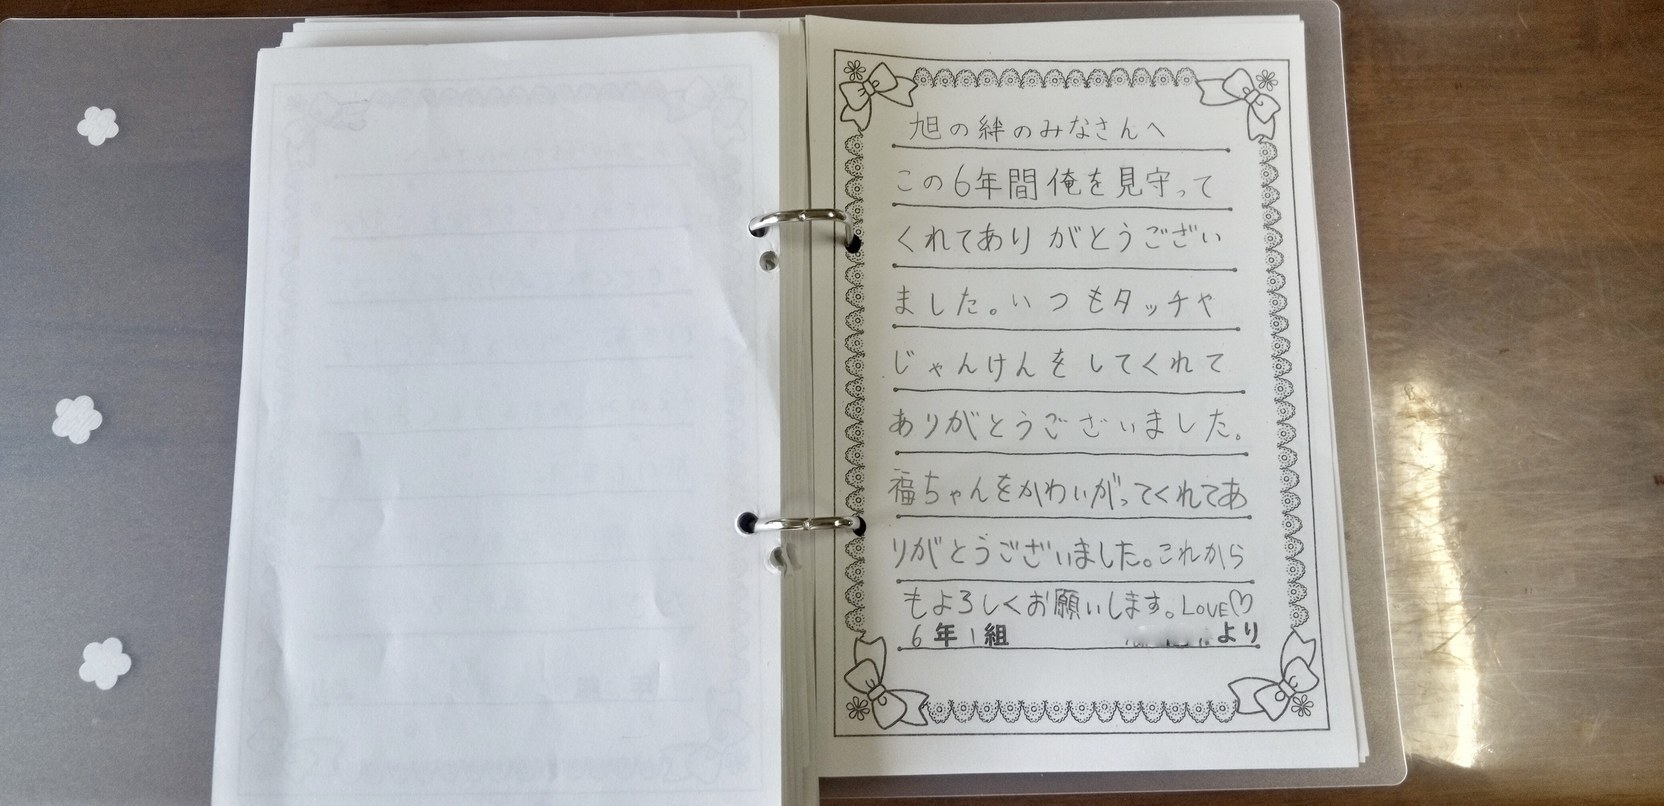 旭の絆のみなさんへ
この6年間俺を見守って
くれてありがとうござい
ました。いつもタッチや
じゃんけんをしてくれて
ありがとうございました。
福ちゃんをかわいがってくれてあ
りがとうございました。これから
もよろしくお願いします。LOVE♡
6年1組 より